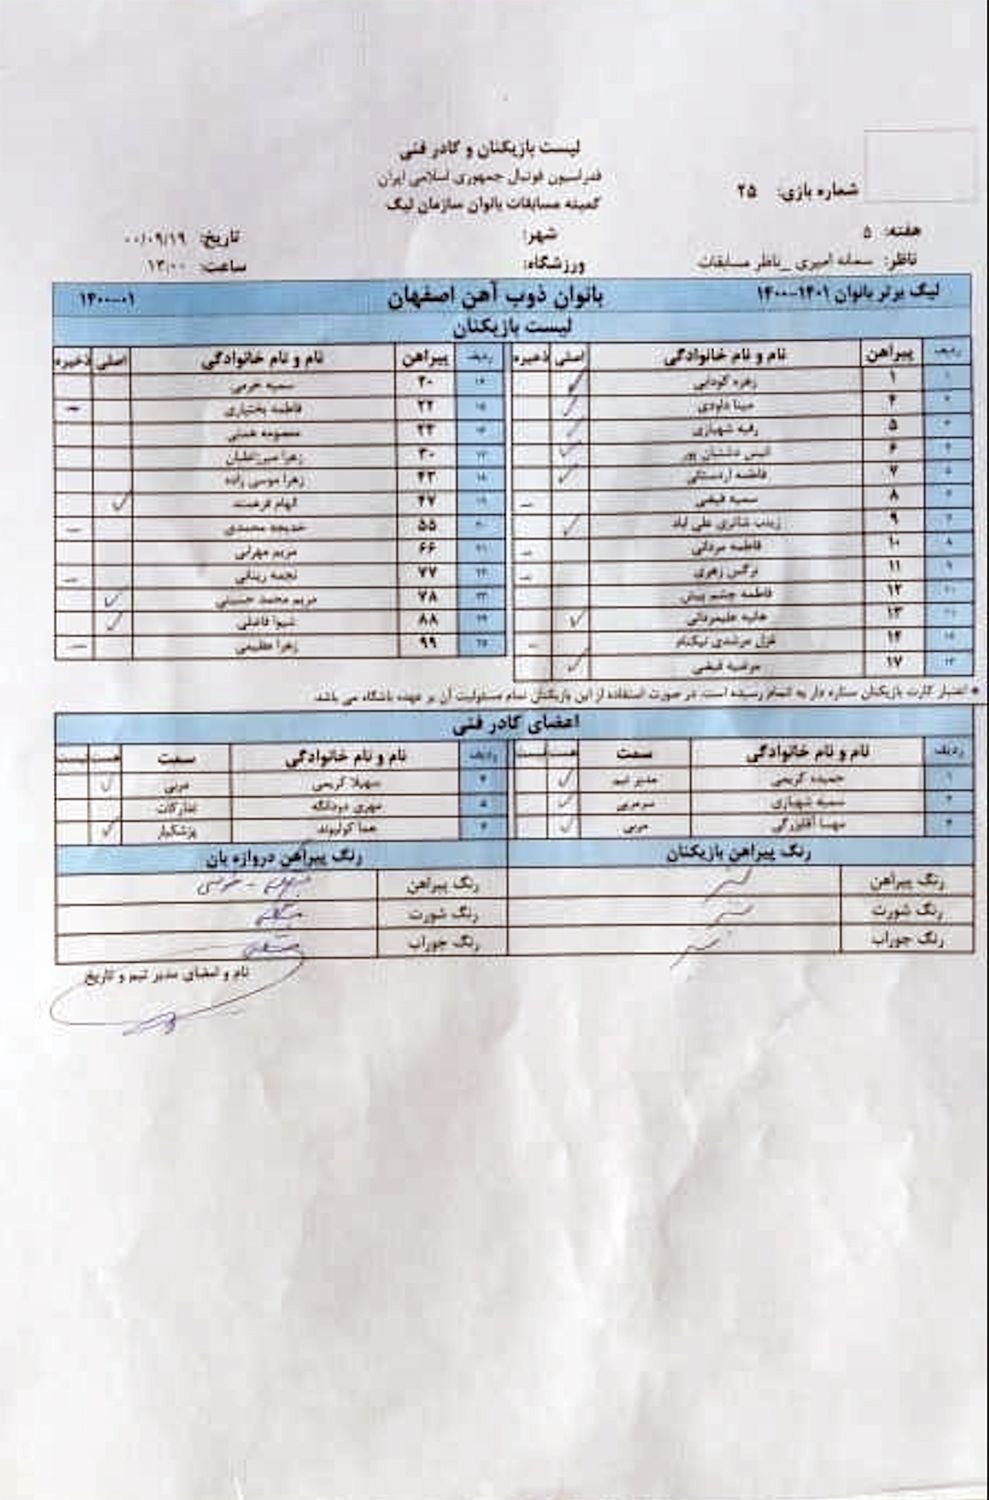 لیست بازیکنان و کادر فنی
فدراسیون فوتبال جمهوری اسلامی ایران
کمیته مسابقات بانوان سازمان لیگ
شماره بازی: ۲۵
هفته: ۵ شهر: تاریخ: ۰۰/۰۹/۱۹
ناظر: سمانه امیری _ناظر مسابقات ورزشگاه: ساعت: ۱۳:۰۰
لیگ برتر بانوان ۱۴۰۱-۱۴۰۰ بانوان ذوب آهن اصفهان ۱۴۰۰-۰۱
لیست بازیکنان
ردیف پیراهن نام و نام خانوادگی اصلی ذخیره ردیف پیراهن نام و نام خانوادگی اصلی ذخیره
۱ ۱ زهره کودایی ✓ ۱۴ ۲۰ سمیه خرمی
۲ ۴ مینا داودی ✓ ۱۵ ۲۲ فاطمه بختیاری –
۳ ۵ رقیه شهبازی ✓ ۱۶ ۲۳ معصومه همتی
۴ ۶ انیس دشتبان پور ✓ ۱۷ ۳۰ زهرا میرزاطیان
۵ ۷ فاطمه اردستانی ✓ ۱۸ ۴۳ زهرا موسی زاده
۶ ۸ سمیه فیضی – ۱۹ ۴۷ الهام فرهمند ✓
۷ ۹ زینب شاتری علی اباد ✓ ۲۰ ۵۵ خدیجه محمدی –
۸ ۱۰ فاطمه مردانی – ۲۱ ۶۶ مریم مهرابی
۹ ۱۱ نرگس زهری – ۲۲ ۷۷ نجمه ربنانی –
۱۰ ۱۲ فاطمه چشم پیش ۲۳ ۷۸ مریم محمد حسینی ✓
۱۱ ۱۳ هانیه علیمردانی ✓ ۲۴ ۸۸ شیوا فاضلی ✓
۱۲ ۱۴ غزل مرشدی نیکنام – ۲۵ ۹۹ زهرا عظیمی –
۱۳ ۱۷ مرضیه فیضی ✓
* اعتبار کارت بازیکنان ستاره دار به اتمام رسیده است. در صورت استفاده از این بازیکنان تمام مسئولیت آن بر عهده باشگاه می باشد
اعضای کادر فنی
ردیف نام و نام خانوادگی سمت هست نیست ردیف نام و نام خانوادگی سمت هست نیست
۱ حمیده کریمی مدیر تیم ✓ ۴ سهیلا کریمی مربی ✓
۲ سمیه شهبازی سرمربی ✓ ۵ مهری دودانگه تدارکات
۳ مهسا آقابزرگی مربی ✓ ۶ هما کولیوند پزشکیار ✓
رنگ پیراهن بازیکنان رنگ پیراهن دروازه بان
رنگ پیراهن سبز رنگ پیراهن
رنگ شورت سبز رنگ شورت مشکی
رنگ جوراب سبز رنگ جوراب مشکی
نام و امضای مدیر تیم و تاریخ